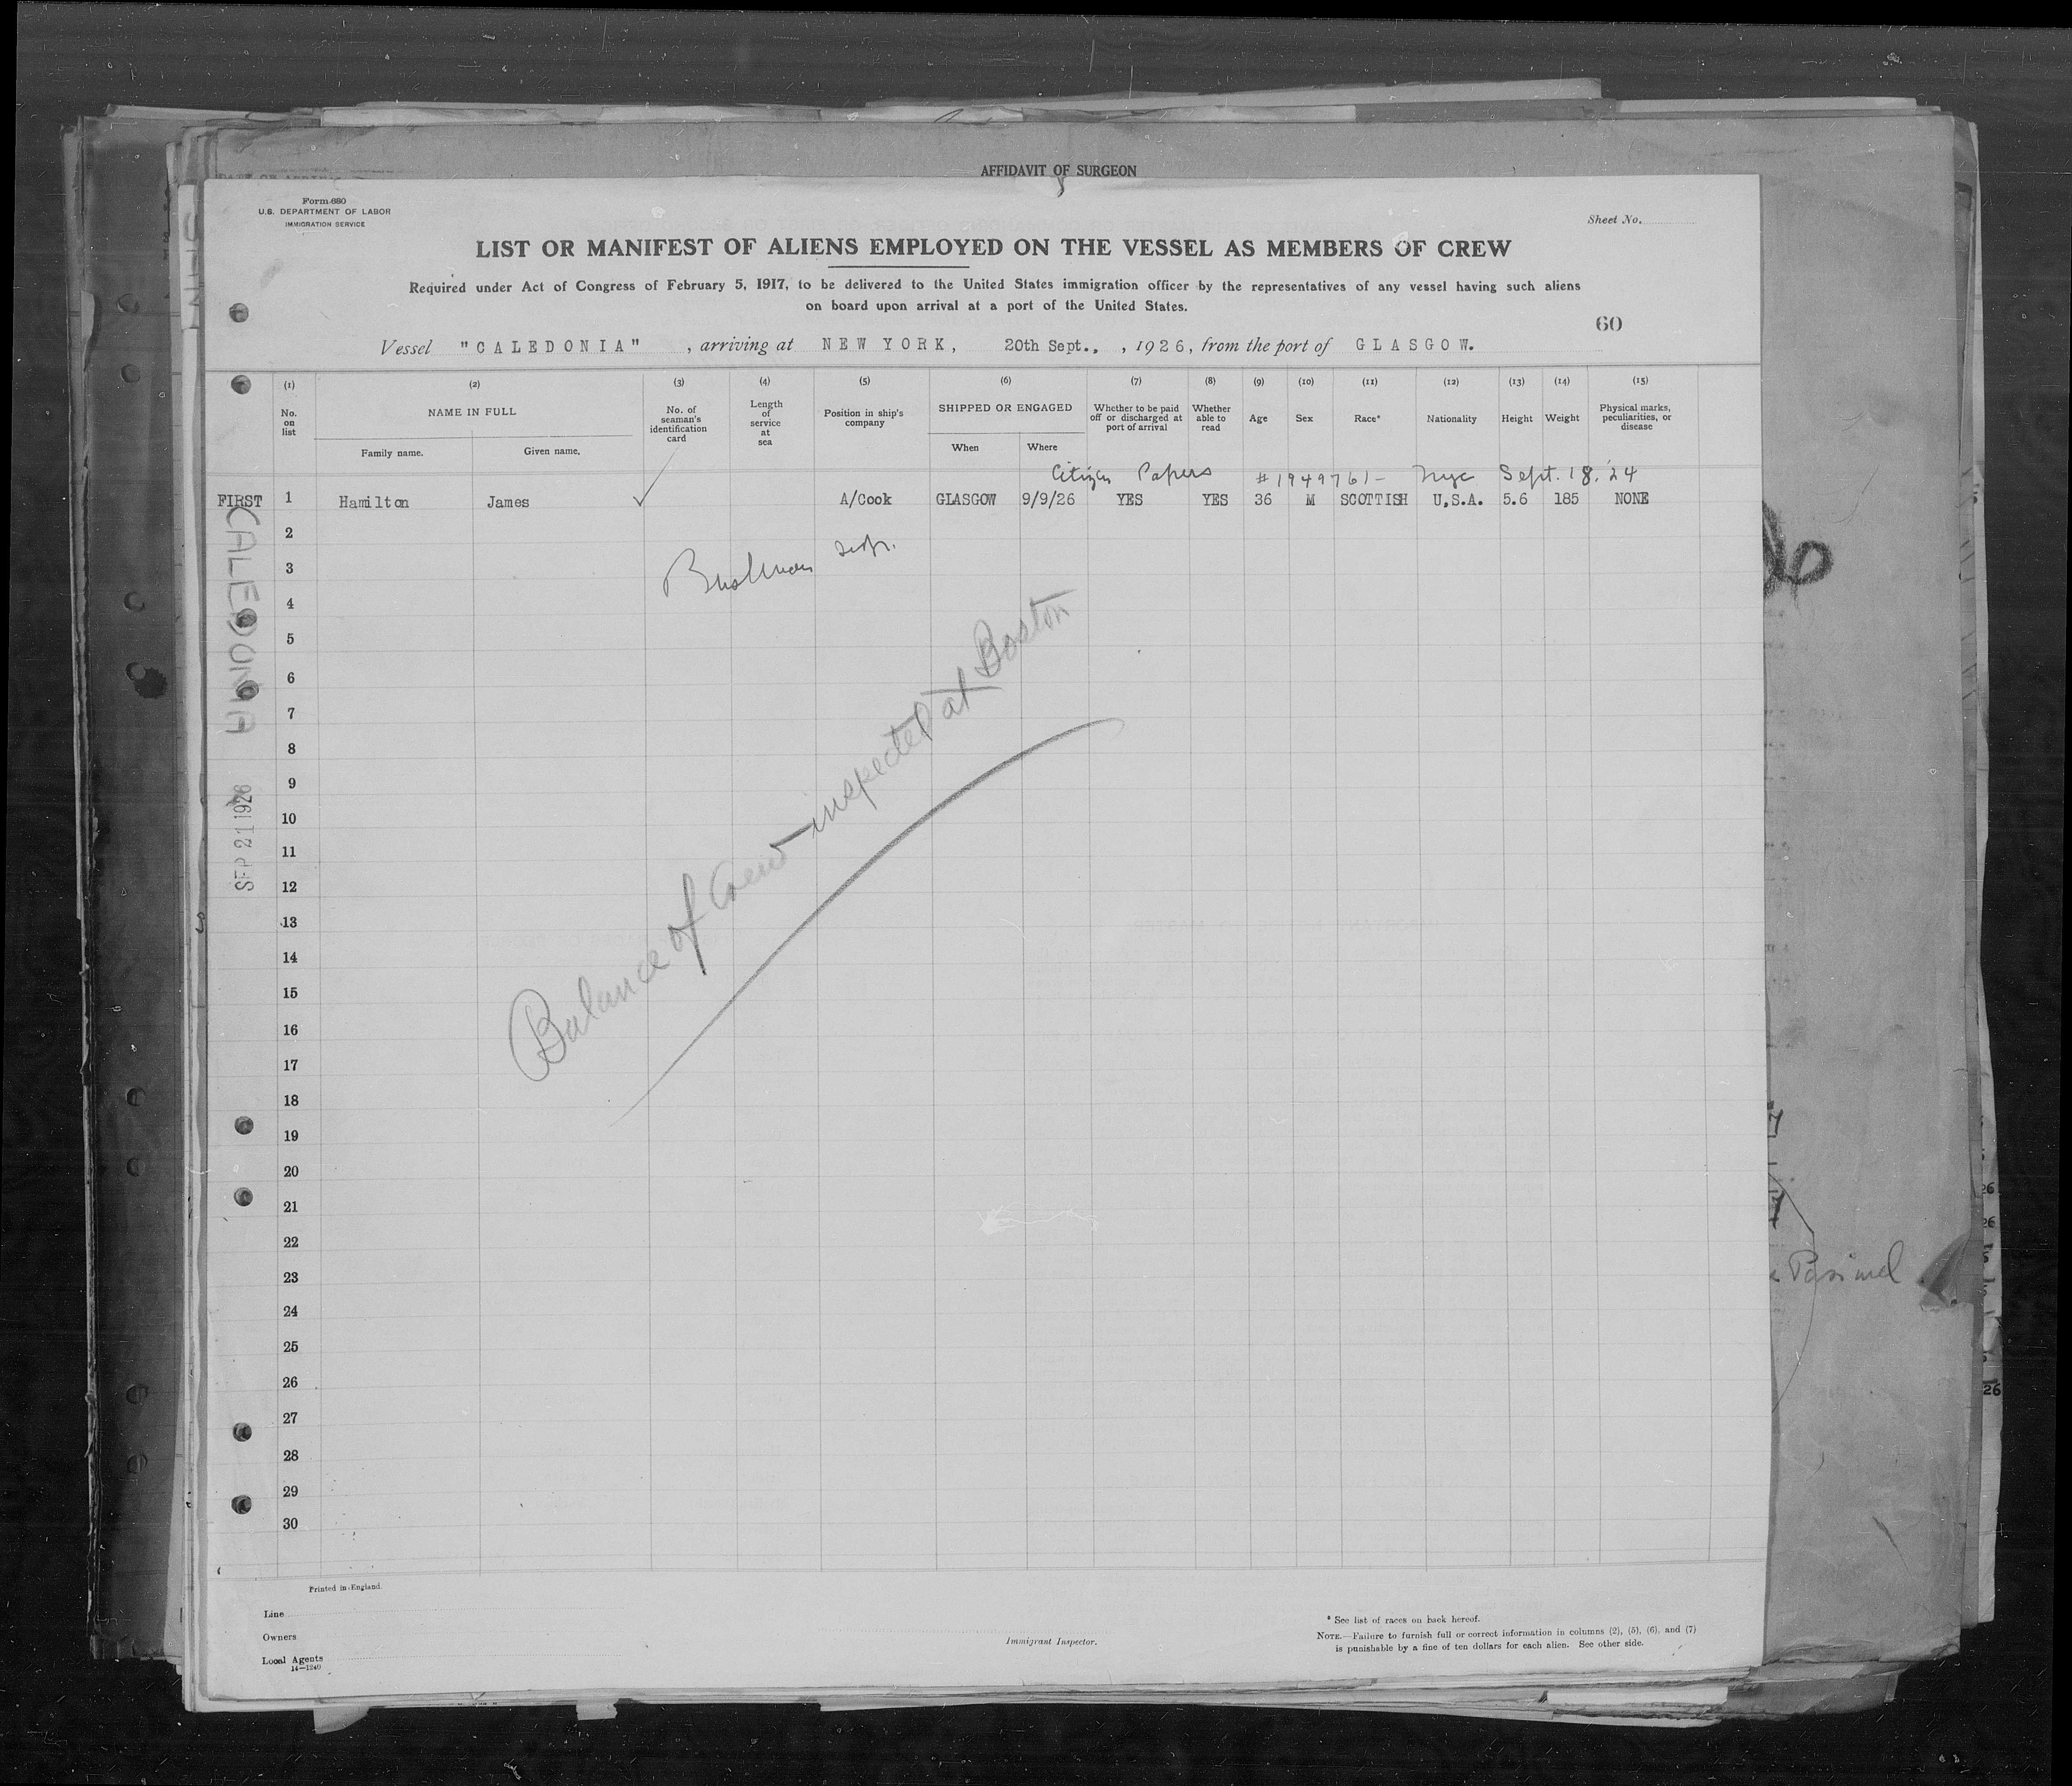 AFFIDAVIT OF SURGEON
Form 680
U.S. DEPARTMENT OF LABOR
IMMIGRATION SERVICE
Sheet No.
LIST OR MANIFEST OF ALIENS EMPLOYED ON THE VESSEL AS MEMBERS OF CREW
Required under Act of Congress of February 5, 1917, to be delivered to the United States immigration officer by the representatives of any vessel having such aliens
on board upon arrival at a port of the United States.
60
Vessel "CALEDONIA" , arriving at NEW YORK, 20th Sept., , 1926, from the port of GLASGOW.
(1) (2) (3) (4) (5) (6) (7) (8) (9) (10) (11) (12) (13) (14) (15)
No. on list
NAME IN FULL
Family name. Given name.
No. of seaman's identification card
Length of service at sea
Position in ship's company
SHIPPED OR ENGAGED
When Where
Whether to be paid off or discharged at port of arrival
Whether able to read
Age
Sex
Race*
Nationality
Height
Weight
Physical marks, peculiarities, or disease
Citizen Papers #1949761- Nyc Sept. 18, '24
FIRST 1 Hamilton James ✓ A/Cook GLASGOW 9/9/26 YES YES 36 M SCOTTISH U,S.A. 5.6 185 NONE
2
3
4
5
6
7
8
9
10
11
12
13
14
15
16
17
18
19
20
21
22
23
24
25
26
27
28
29
30
Balance of Crew inspected at Boston
CALEDONIA
SEP 21 1926
Printed in England.
Line
Owners
Local Agents
14-1240
Immigrant Inspector.
* See list of races on back hereof.
NOTE.—Failure to furnish full or correct information in columns (2), (5), (6), and (7)
is punishable by a fine of ten dollars for each alien. See other side.